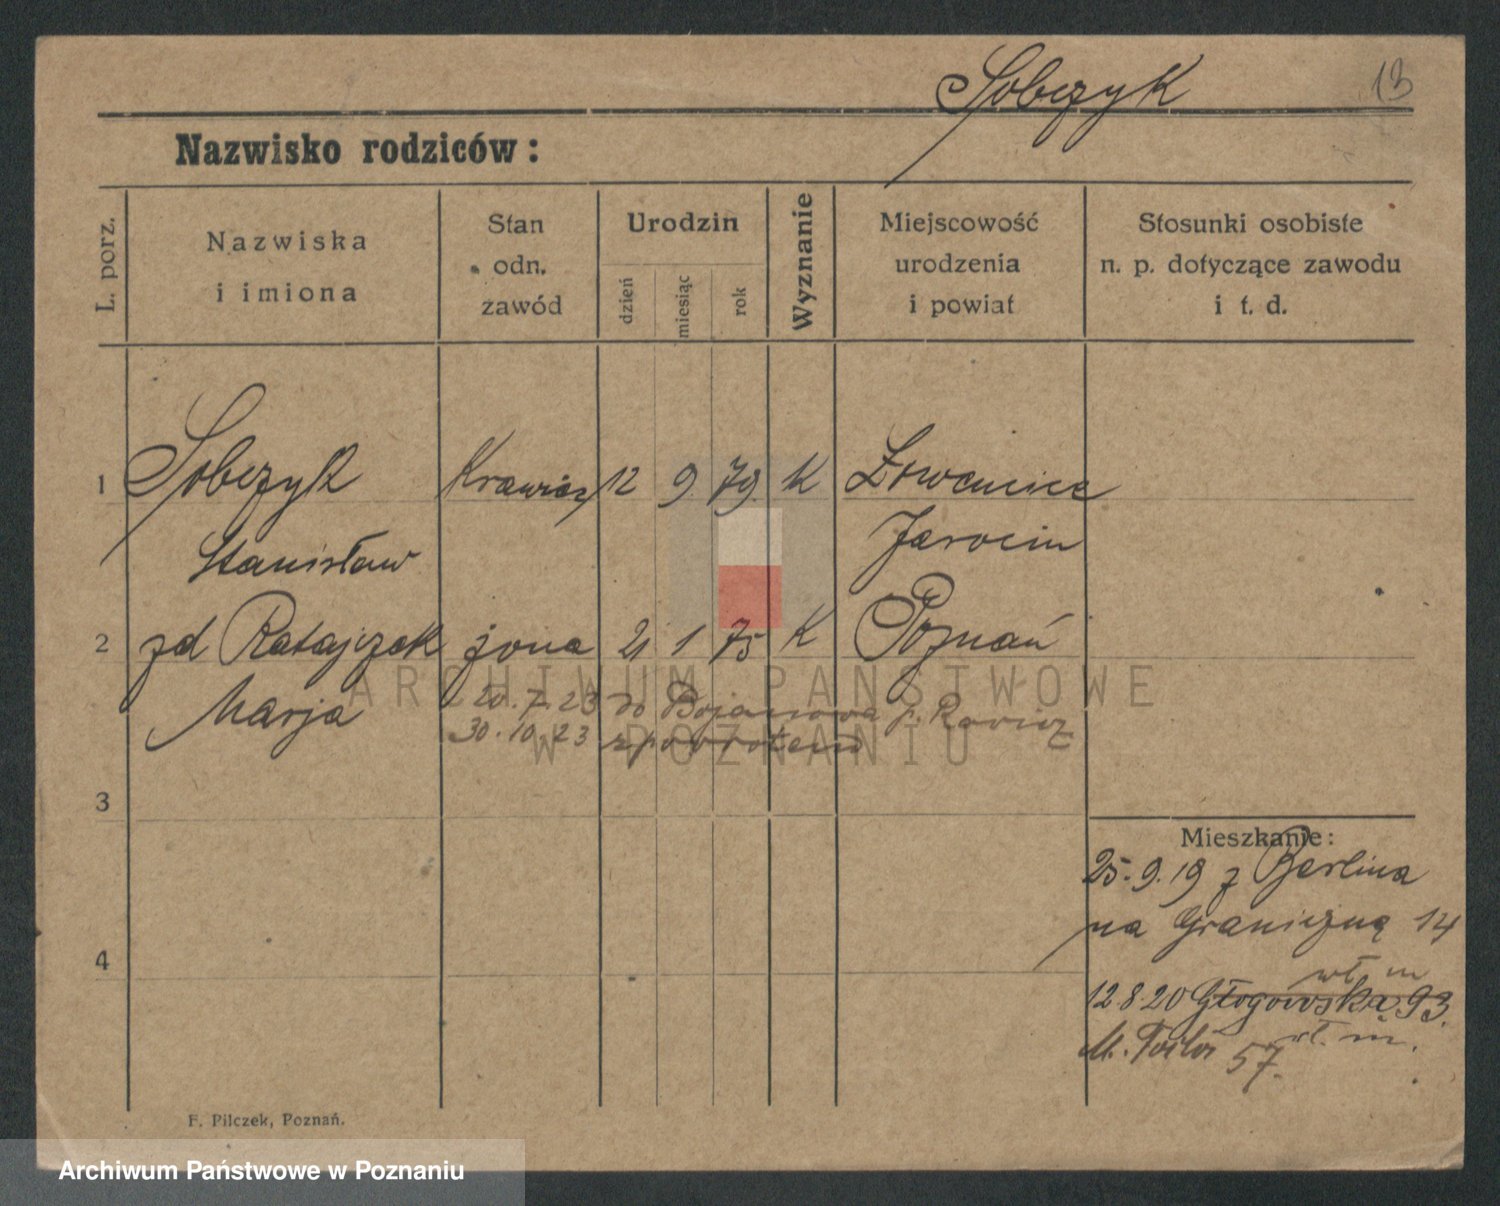 Sobczyk 13
Nazwisko rodziców:
L. porz.
Nazwiska
i imiona
Stan
odn.
zawód
Urodzin
dzień
miesiąc
rok
Wyznanie
Miejscowość
urodzenia
i powiat
Stosunki osobiste
n. p. dotyczące zawodu
i t. d.
1 Sobczyk Krawiec 12 9 79 K
Stanisław Jarocin
2 zd Ratajczak żona 21 1 75 K Poznań
Marja 20.7.23 do Bojanowa p. Rawicz
30.10.23 z powrotem
3
4
Mieszkanie:
25.9.19 z Berlina
na Graniczną 14
wł m
12.8.20 Głogowska 93.
wł. m.
57.
F. Pilczek, Poznań.
ARCHIWUM PAŃSTWOWE
W POZNANIU
Archiwum Państwowe w Poznaniu